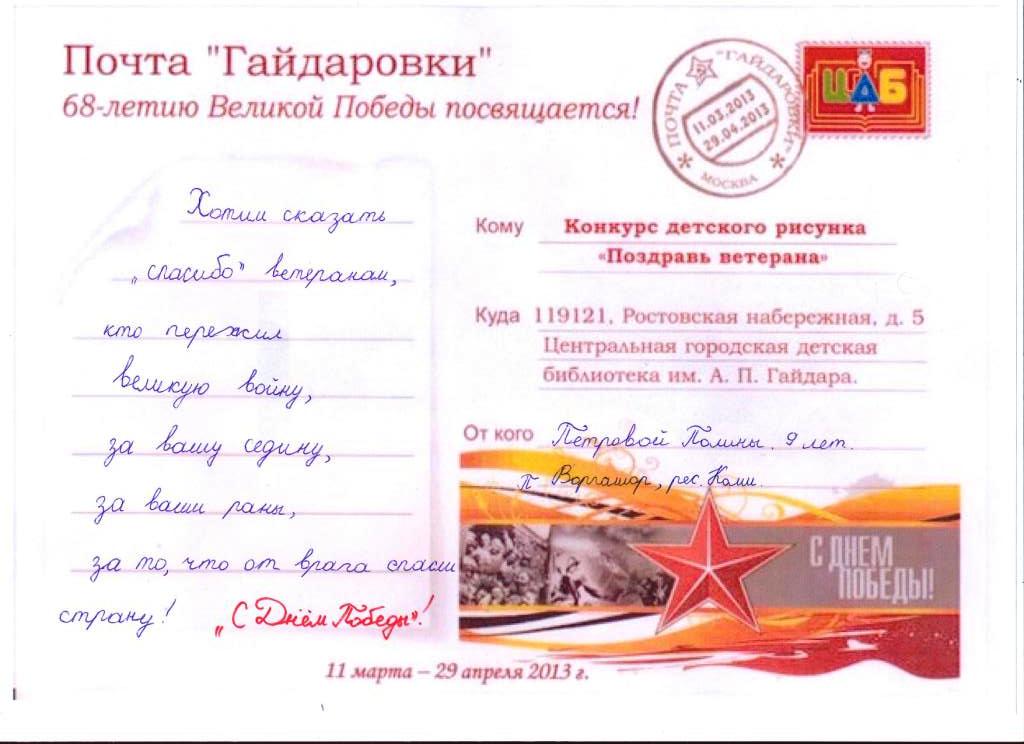 Почта "Гайдаровки"
68-летию Великой Победы посвящается!
ПОЧТА "ГАЙДАРОВКИ"
11.03.2013
29.04.2013
МОСКВА
ЦДБ
Хотим сказать
„спасибо" ветеранам,
кто пережил
великую войну,
за вашу седину,
за ваши раны,
за то, что от врага спасли
страну! „С Днём Победы"!
Кому Конкурс детского рисунка
«Поздравь ветерана»
Куда 119121, Ростовская набережная, д. 5
Центральная городская детская
библиотека им. А. П. Гайдара.
От кого Петровой Полины. 9 лет.
п Воргашор, рес. Коми.
С ДНЕМ
ПОБЕДЫ!
11 марта – 29 апреля 2013 г.